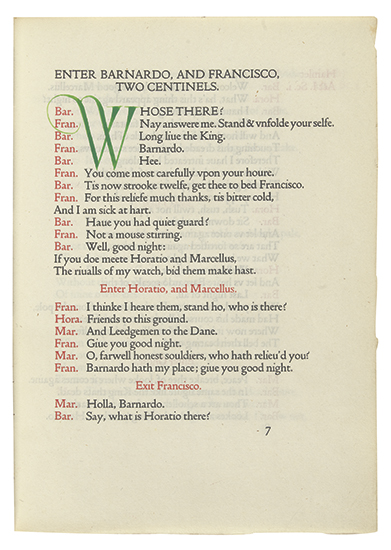 ENTER BARNARDO, AND FRANCISCO,
TWO CENTINELS.
Bar. WHOSE THERE?
Fran. Nay answere me. Stand & vnfolde your selfe.
Bar. Long liue the King.
Fran. Barnardo.
Bar. Hee.
Fran. You come most carefully vpon your houre.
Bar. Tis now strooke twelfe, get thee to bed Francisco.
Fran. For this reliefe much thanks, tis bitter cold,
And I am sick at hart.
Bar. Haue you had quiet guard?
Fran. Not a mouse stirring.
Bar. Well, good night:
If you doe meete Horatio and Marcellus,
The riualls of my watch, bid them make hast.
Enter Horatio, and Marcellus.
Fran. I thinke I heare them, stand ho, who is there?
Hora. Friends to this ground.
Mar. And Leedgemen to the Dane.
Fran. Giue you good night.
Mar. O, farwell honest souldiers, who hath relieu'd you?
Fran. Barnardo hath my place; giue you good night.
Exit Francisco.
Mar. Holla, Barnardo.
Bar. Say, what is Horatio there?
7